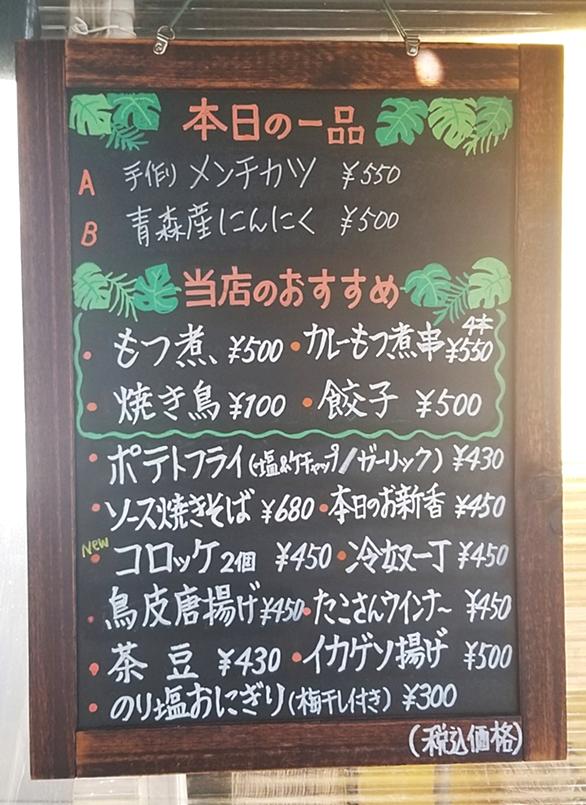 本日の一品
A 手作り メンチカツ ¥550
B 青森産にんにく ¥500
当店のおすすめ
・もつ煮、¥500 ・カレーもつ煮串 4本 ¥550
・焼き鳥 ¥100 ・餃子 ¥500
・ポテトフライ(塩&ケチャップ/ガーリック) ¥430
・ソース焼きそば ¥680 ・本日のお新香 ¥450
New ・コロッケ2個 ¥450 ・冷奴一丁 ¥450
・鳥皮唐揚げ ¥450 ・たこさんウインナー ¥450
・茶豆 ¥430 ・イカゲソ揚げ ¥500
・のり塩おにぎり(梅干し付き) ¥300
(税込価格)